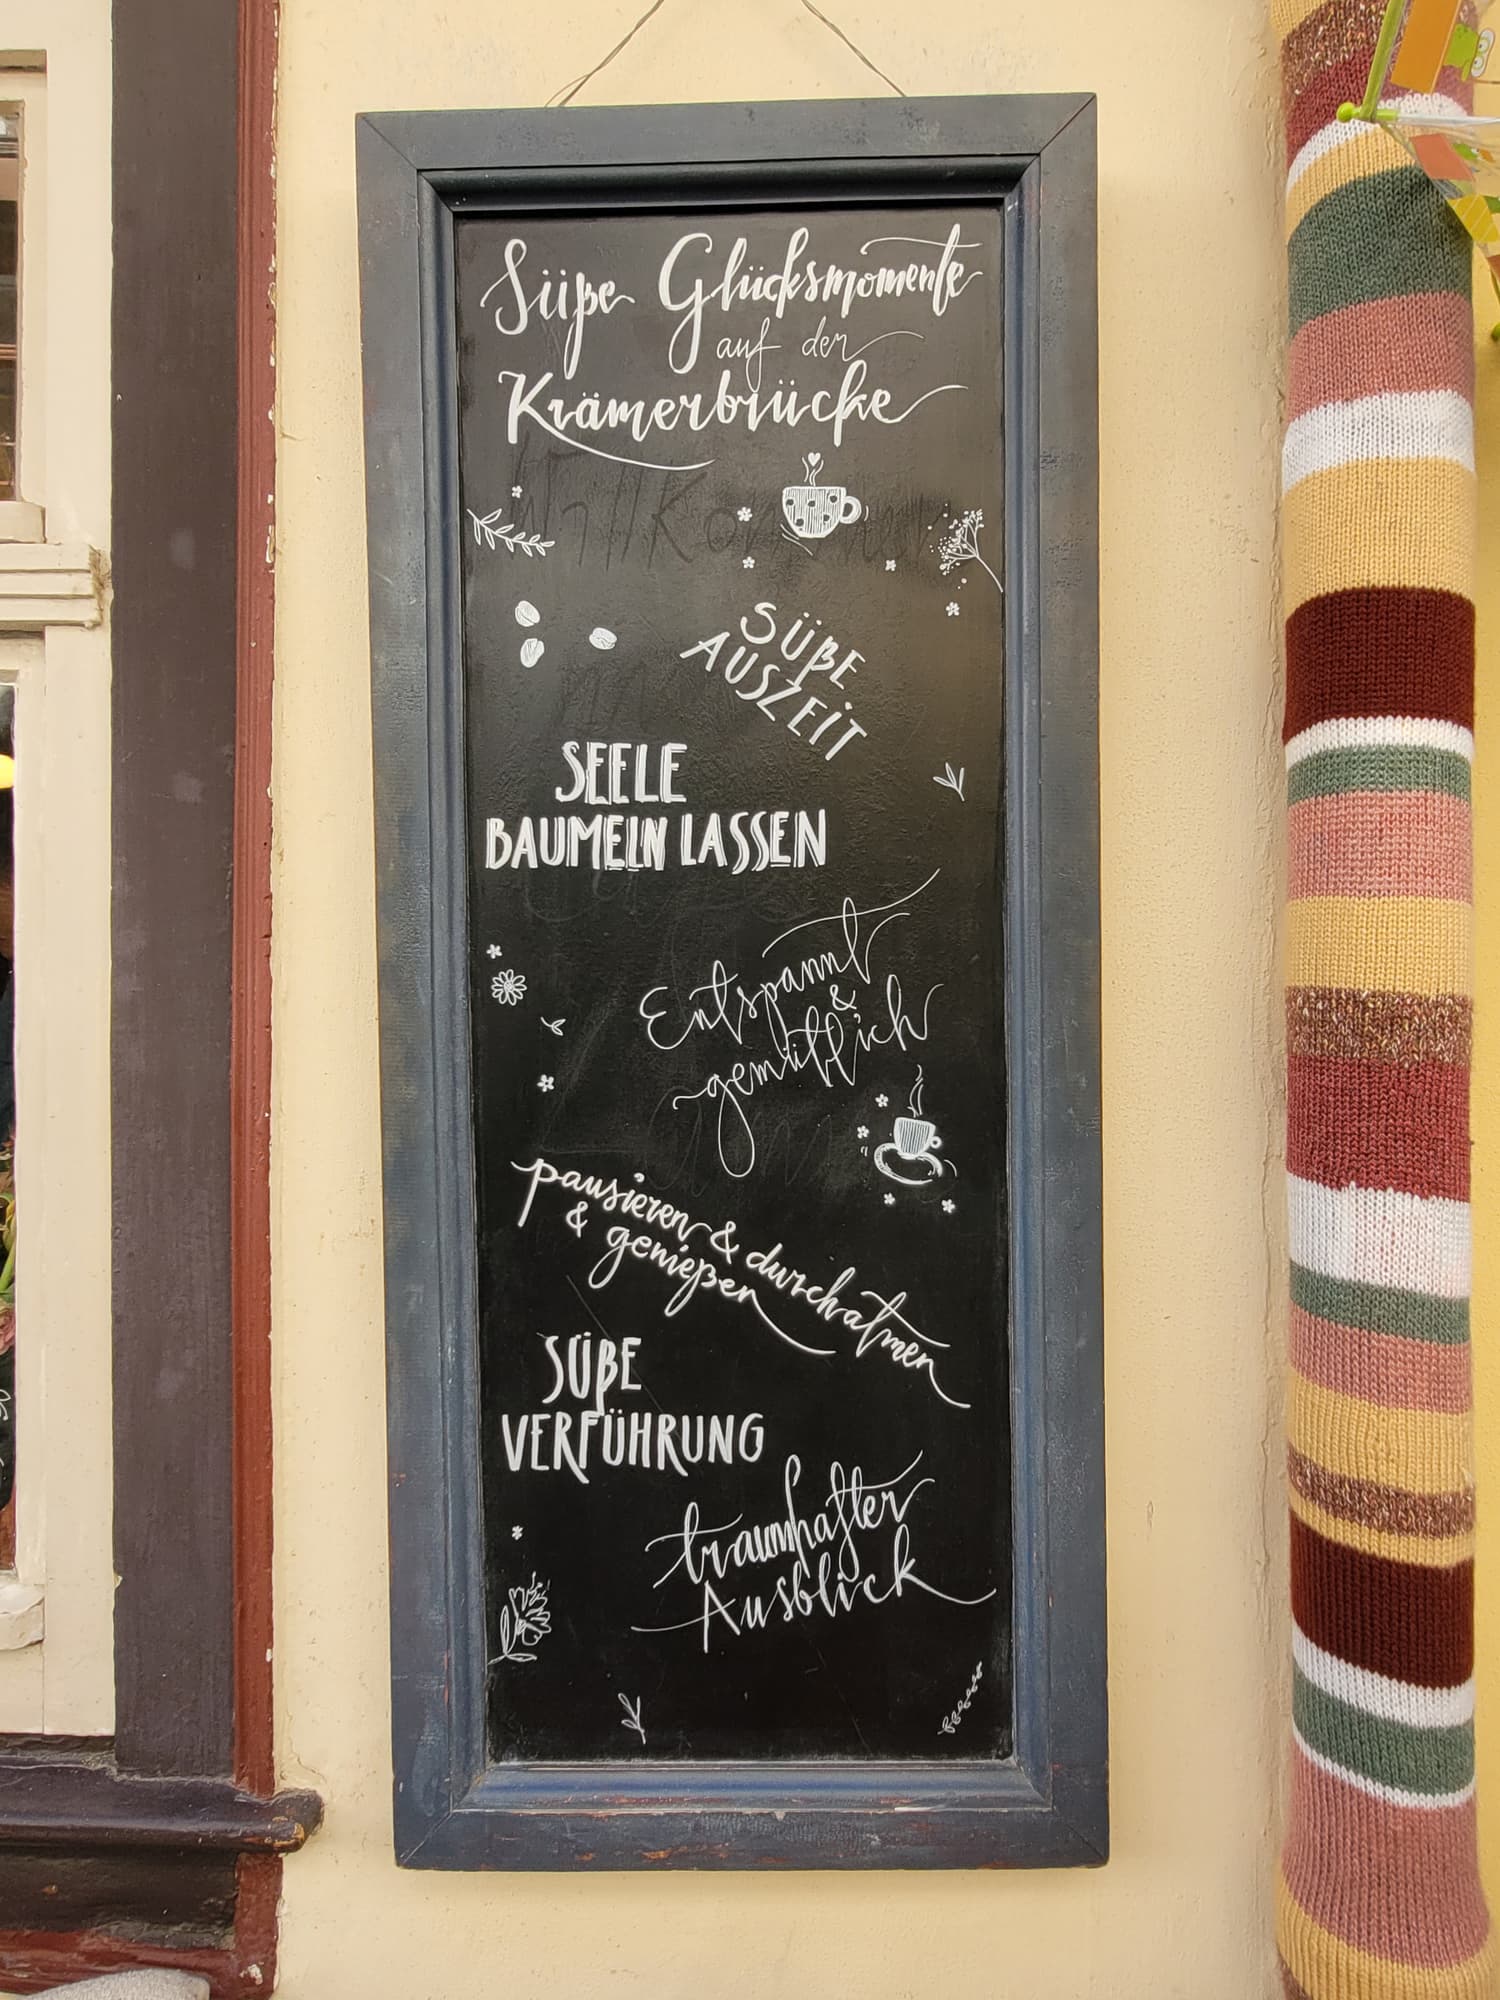 Süße Glücksmomente
auf der
Krämerbrücke
Willkommen
SÜßE
AUSZEiT
SEELE
BAUMELN LASSEN
Entspannt
&
gemütlich
pausieren & durchatmen
& genießen
SÜßE
VERFÜHRUNG
traumhafter
Ausblick